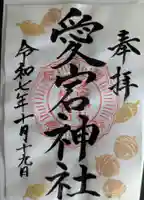 奉拝
愛宕神社
令和七年十月十九日